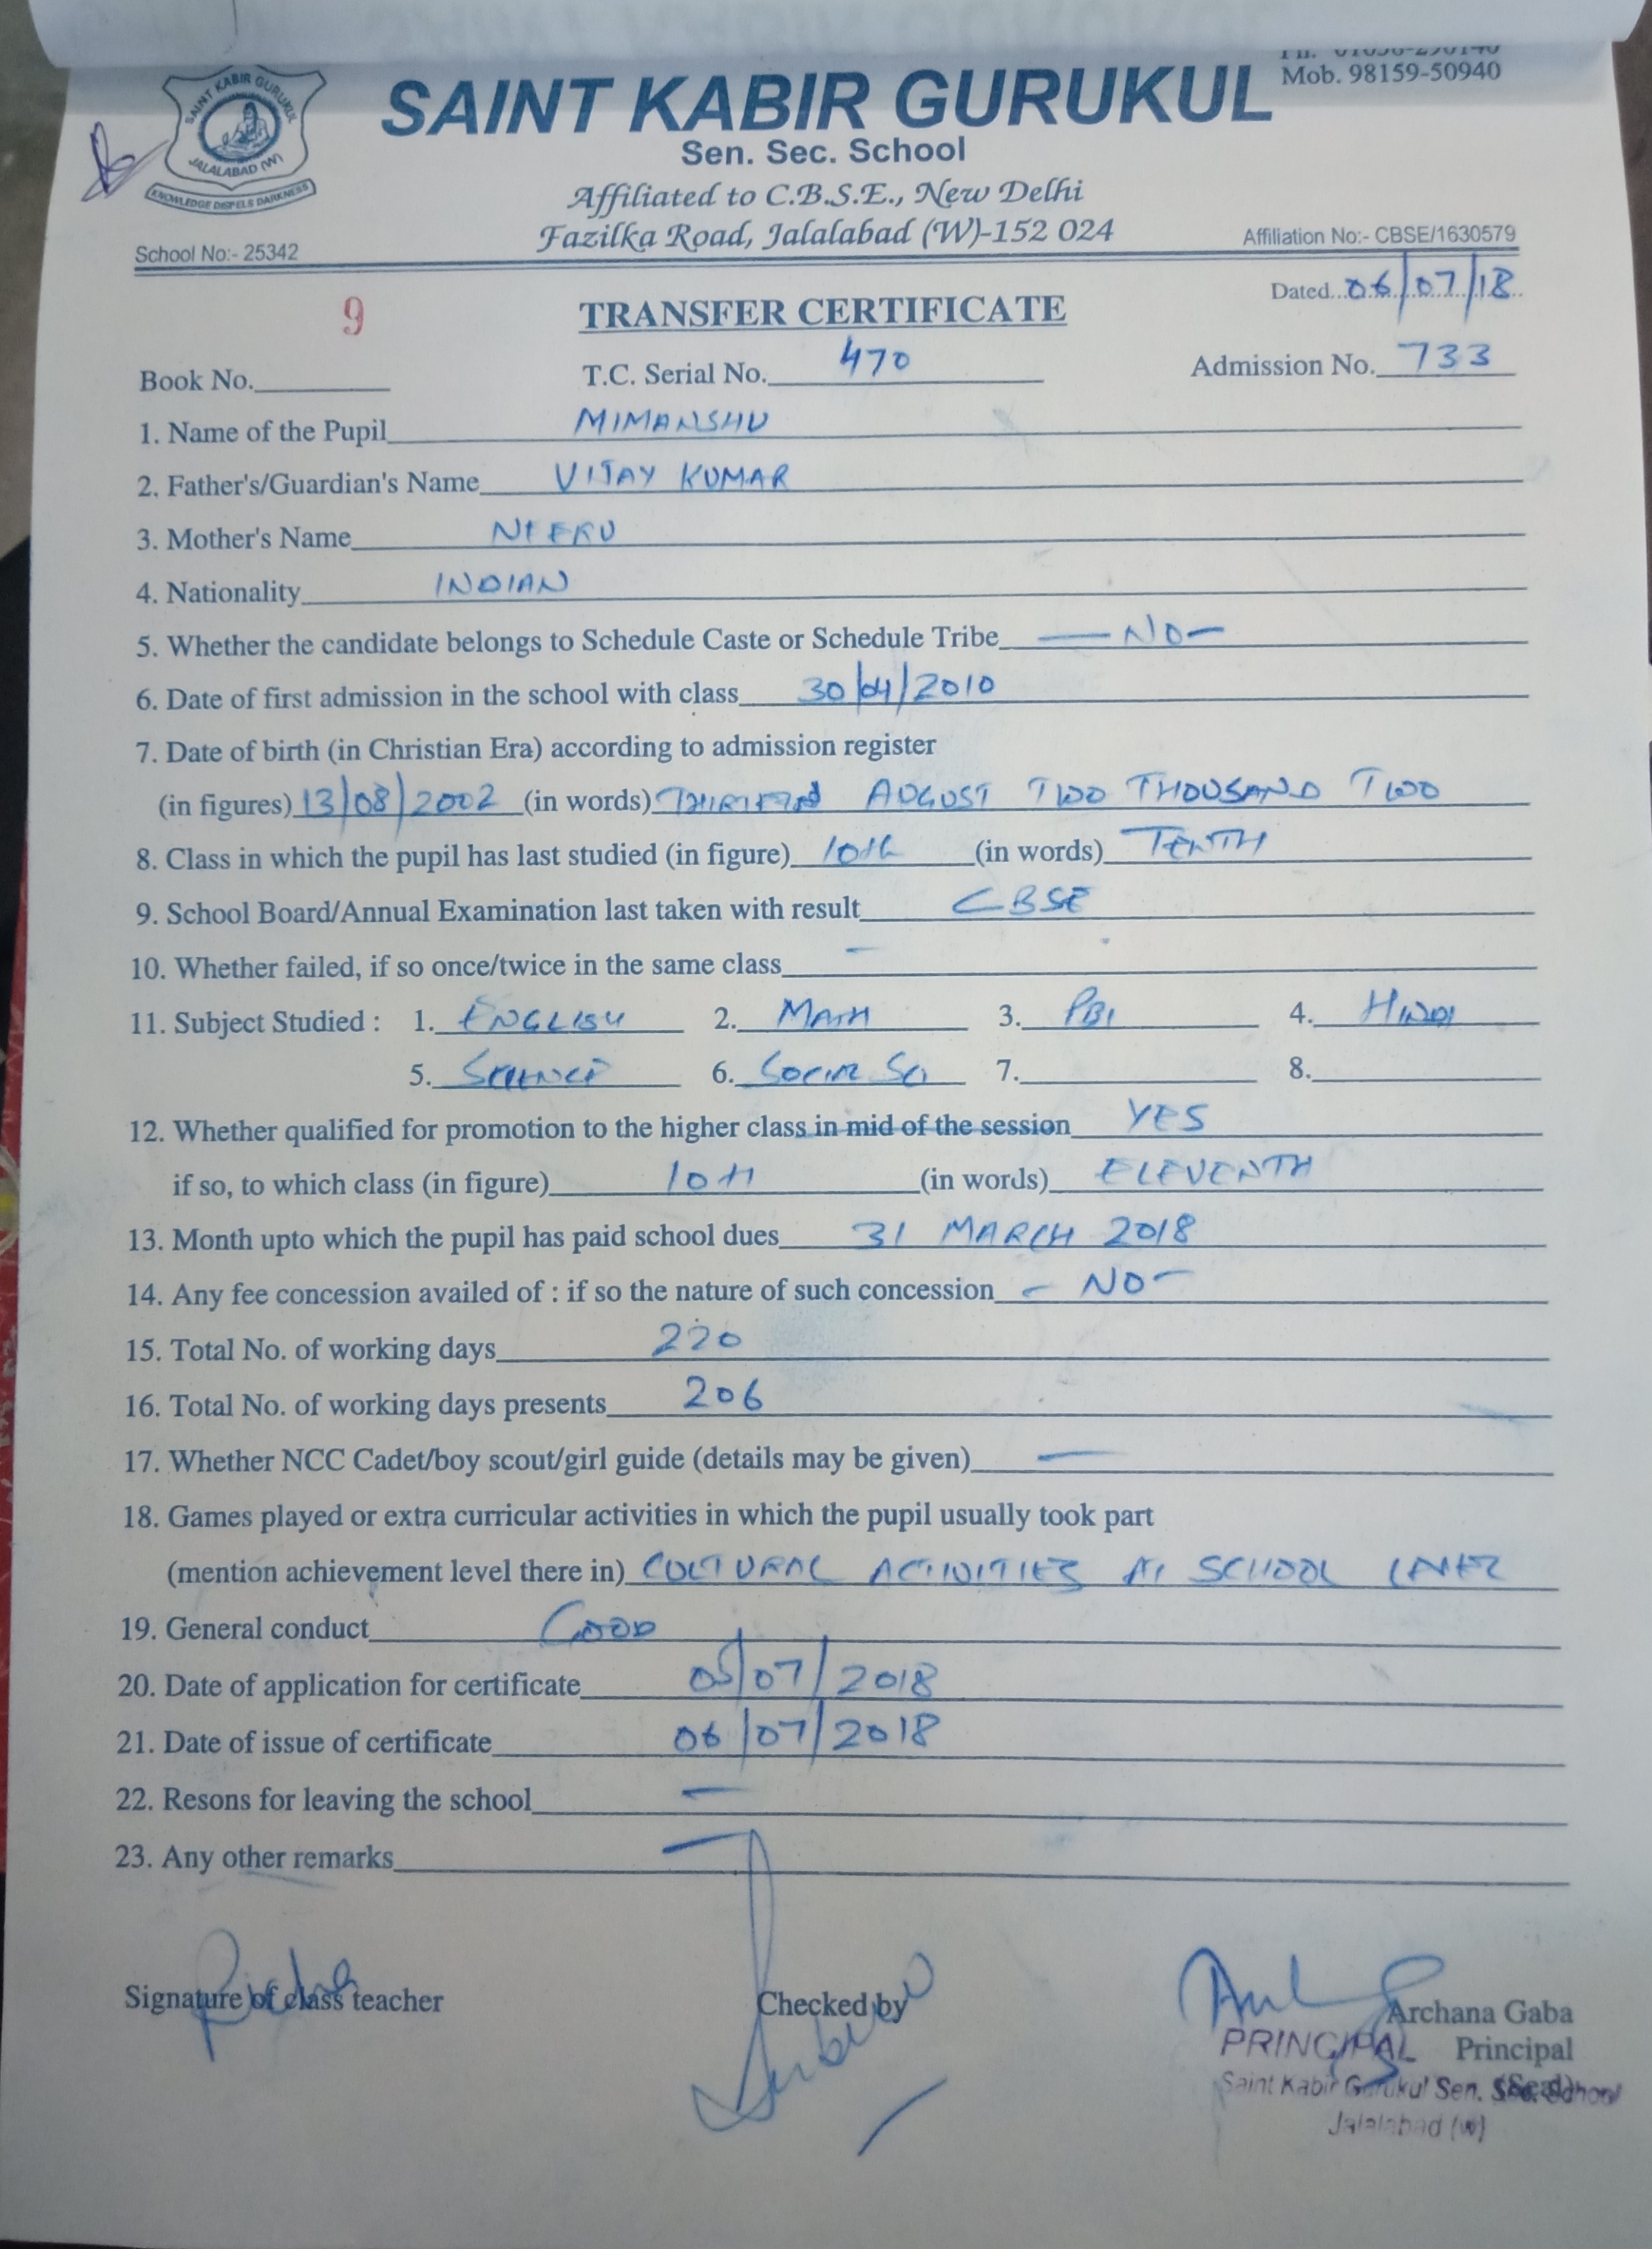 SAINT KABIR GURUKUL
JALALABAD (W)
KNOWLEDGE DISPELS DARKNESS
SAINT KABIR GURUKUL
Mob. 98159-50940
Sen. Sec. School
Affiliated to C.B.S.E., New Delhi
Fazilka Road, Jalalabad (W)-152 024
School No:- 25342
Affiliation No:- CBSE/1630579
Dated...06/07/18
9
TRANSFER CERTIFICATE
Book No. T.C. Serial No. 470 Admission No. 733
1. Name of the Pupil MIMANSHU
2. Father's/Guardian's Name VIJAY KUMAR
3. Mother's Name NEERU
4. Nationality INDIAN
5. Whether the candidate belongs to Schedule Caste or Schedule Tribe — NO —
6. Date of first admission in the school with class 30/04/2010
7. Date of birth (in Christian Era) according to admission register
(in figures) 13/08/2002 (in words) AUGUST TWO THOUSAND TWO
8. Class in which the pupil has last studied (in figure) 10th (in words) TENTH
9. School Board/Annual Examination last taken with result CBSE
10. Whether failed, if so once/twice in the same class –
11. Subject Studied : 1. ENGLISH 2. MATH 3. PBI 4. HINDI
5. SCIENCE 6. SOCIAL SCI 7. 8.
12. Whether qualified for promotion to the higher class in mid of the session YES
if so, to which class (in figure) 10th (in words) ELEVENTH
13. Month upto which the pupil has paid school dues 31 MARCH 2018
14. Any fee concession availed of : if so the nature of such concession – NO –
15. Total No. of working days 220
16. Total No. of working days presents 206
17. Whether NCC Cadet/boy scout/girl guide (details may be given) —
18. Games played or extra curricular activities in which the pupil usually took part
(mention achievement level there in) CULTURAL ACTIVITIES AT SCHOOL LEVEL
19. General conduct GOOD
20. Date of application for certificate 05/07/2018
21. Date of issue of certificate 06/07/2018
22. Resons for leaving the school —
23. Any other remarks —
Signature of class teacher
Checked by
Archana Gaba
PRINCIPAL Principal
Saint Kabir Gurukul Sen. Sec. School (Seal)
Jalalabad (W)